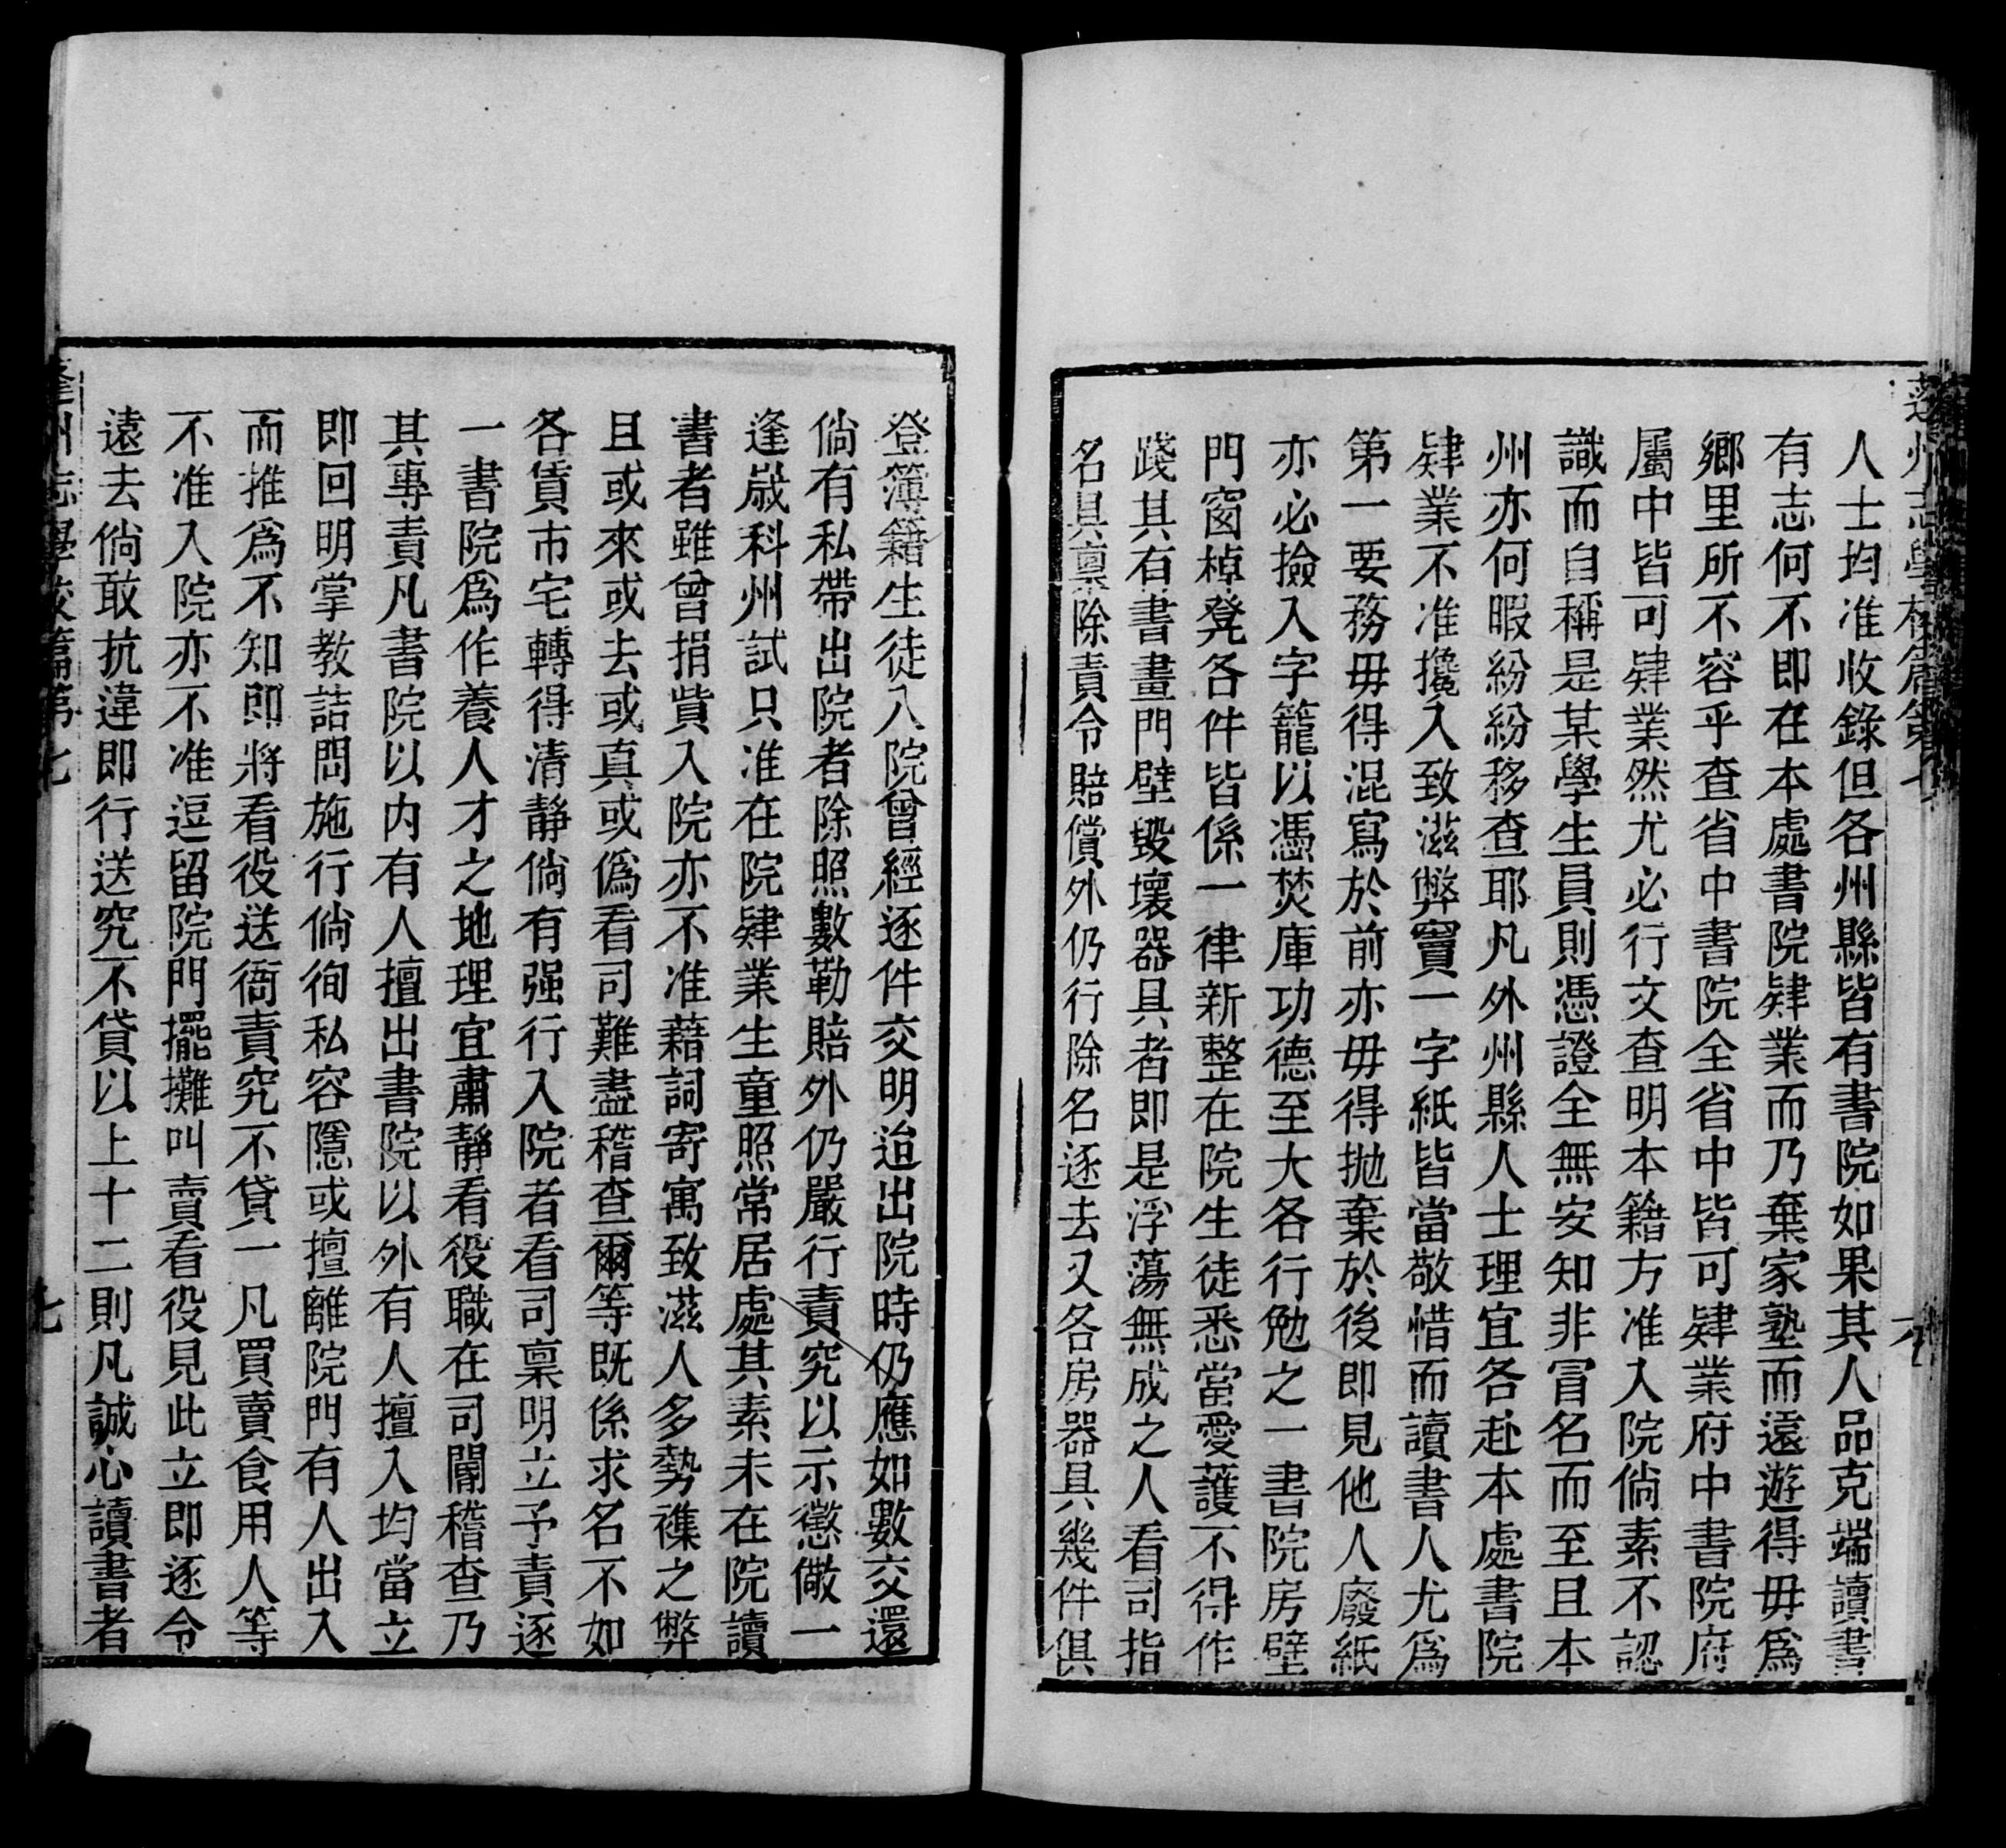 蓬州志學校篇第七
人士均准收錄但各州縣皆有書院如果其人品克端讀書
有志何不即在本處書院肄業而乃棄家塾而遠遊得毋爲
鄉里所不容乎查省中書院全省中皆可肄業府中書院府
屬中皆可肄業然尤必行文查明本籍方准入院倘素不認
識而自稱是某學生員則憑證全無安知非冒名而至且本
州亦何暇紛紛移查耶凡外州縣人士理宜各赴本處書院
肄業不准攙入致滋弊竇一字紙皆當敬惜而讀書人尤爲
第一要務毋得混寫於前亦毋得拋棄於後即見他人廢紙
亦必撿入字籠以憑焚庫功德至大各行勉之一書院房壁
門窗棹凳各件皆係一律新整在院生徒悉當愛護不得作
踐其有書畫門壁毀壞器具者即是浮蕩無成之人看司指
名具稟除責令賠償外仍行除名逐去又各房器具幾件俱
登簿籍生徒入院曾經逐件交明迨出院時仍應如數交還
倘有私帶出院者除照數勒賠外仍嚴行責究以示懲儆一
逢歲科州試只准在院肄業生童照常居處其素未在院讀
書者雖曾捐貲入院亦不准藉詞寄寓致滋人多勢襍之弊
且或來或去或真或僞看司難盡稽查爾等既係求名不如
各賃市宅轉得清靜倘有强行入院者看司稟明立予責逐
一書院爲作養人才之地理宜肅靜看役職在司閽稽查乃
其專責凡書院以內有人擅出書院以外有人擅入均當立
即回明掌教詰問施行倘徇私容隱或擅離院門有人出入
而推爲不知即將看役送衙責究不貸一凡買賣食用人等
不准入院亦不准逗留院門擺攤叫賣看役見此立即逐令
遠去倘敢抗違即行送究不貸以上十二則凡誠心讀書者
蓬州志學校篇第七
七